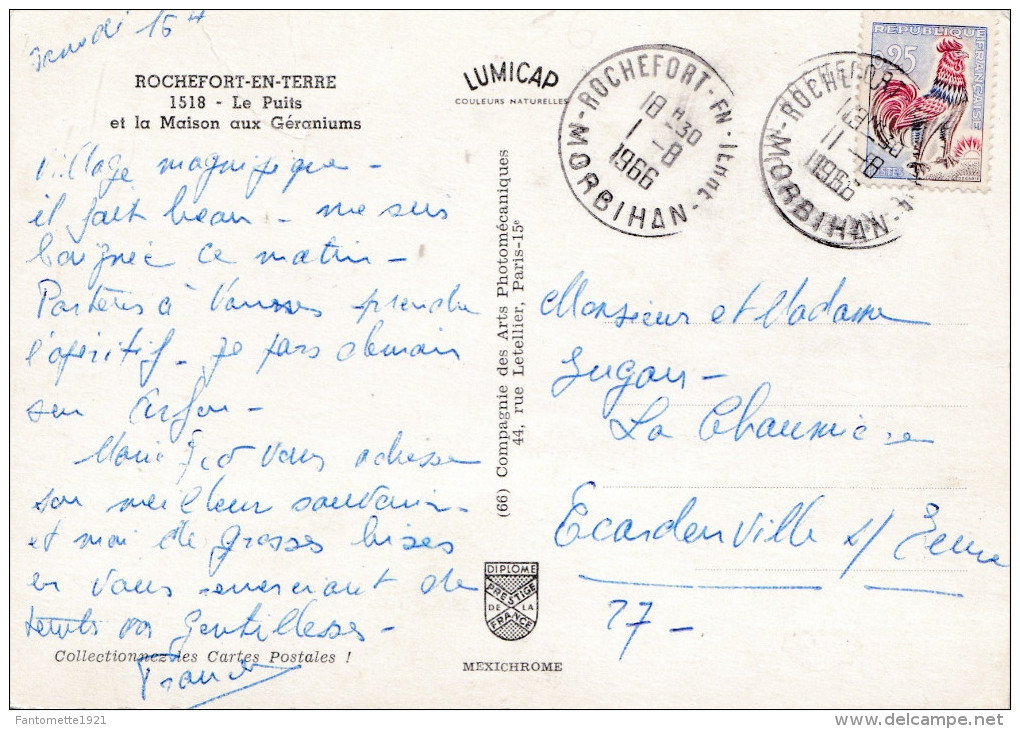 15 H
ROCHEFORT-EN-TERRE
1518 - Le Puits
et la Maison aux Géraniums
Village magnifique -
il fait beau - me suis
baignée ce matin -
Partons à Vannes prendre
l'apéritif - je pars demain
sur
Marie vous adresse
son meilleur souvenir -
et moi de grosses bises
en vous remerciant de
toutes vos gentillesses -
Collectionnez les Cartes Postales !
LUMICAP
COULEURS NATURELLES
(66) Compagnie des Arts Photomécaniques
44, rue Letellier, Paris-15e
DIPLOME
PRESTIGE
DE LA
FRANCE
MEXICHROME
ROCHEFORT-EN-TERRE
18 H 30
1 -8
1966
MORBIHAN
ROCHEFORT
1966
MORBIHAN
RÉPUBLIQUE FRANÇAISE
25
POSTES
Monsieur et Madame
La Chaumière
Ecardenville s/ Eure
27 -
Fantomette1921
www.delcampe.net